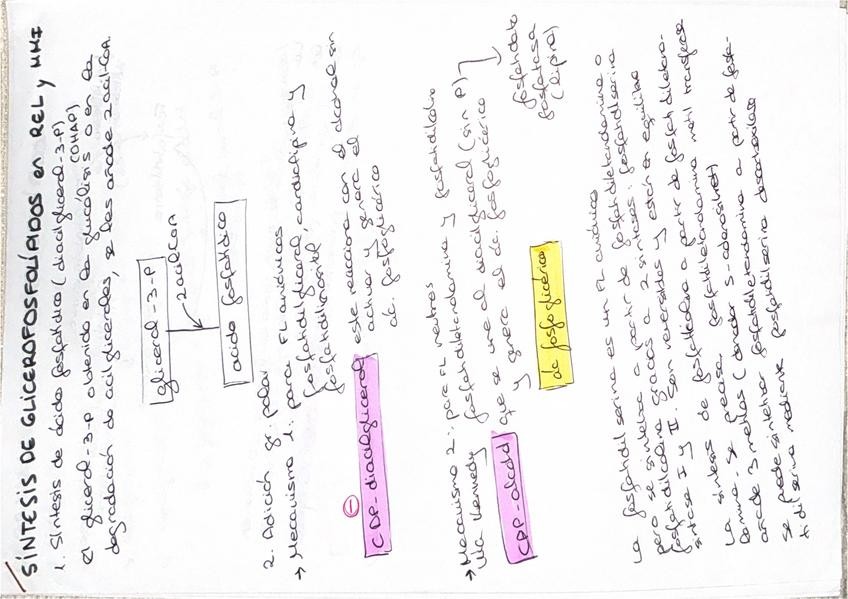 SÍNTESIS DE GLICEROFOSFOLÍPIDOS en REL y MMI
1. Síntesis de ácido fosfatídico (diacilglicerol-3-P)
(DHAP)
el glicerol-3-P obtenido en la glucólisis o en la
degradación de acilgliceroles, se les añade 2 acil-CoA.
glicerol-3-P
2 acil CoA
ácido fosfatídico
2. Adición gr. polar
→ Mecanismo 1: para FL aniónicos
fosfatidilglicerol, cardiolipina y
fosfatidilinositol
⊖
CDP-diacilglicerol este reacciona con el alcohol sin
activar y genera el
ác. fosfoglicérico
→ Mecanismo 2: para FL neutros
Vía Kennedy fosfatidiletanolamina y fosfatidilcolina
CDP-alcohol que se une al diacilglicerol (sin P)
y genera el ác. fosfoglicérico
fosfatidato
fosfatasa
(lipina)
ác fosfoglicérico
La fosfatidilserina es un FL aniónico
pero se sintetiza a partir de fosfatidiletanolamina o
fosfatidilcolina gracias a 2 sintasas: fosfatidilserina
sintasa I y II. Son reversibles y están en equilibrio
La síntesis de fosfatilcolina a partir de fosfatidiletanola-
mina, se precisa fosfatidiletanolamina metil transferasa
añade 3 metilos (donador S-adenosilmet)
se puede sintetizar fosfatidiletanolamina a partir de fosfa-
tidilserina mediante fosfatidilserina descarboxilasa